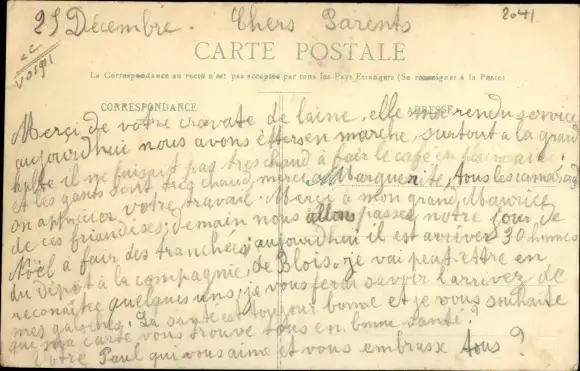 25 Décembre. Chers Parents
2041
CARTE POSTALE
La Correspondance au recto n'est pas acceptée par tous les Pays Etrangers (Se renseigner à la Poste)
CORRESPONDANCE
ADRESSE
Merci de votre cravate de laine, elle rendu service
aujourdhui nous avons êtters en marche, surtout a la grand
halte il ne faisait pas très chaud à fair le café en plaine air,
et les gants sont très chaud, merci a Marguerite, tous les camarades
on apprécier votre travail. Merci à mon grand Maurice
de ces friandises, demain nous allons passer notre jour de
Noël à fair des tranchées, aujourdhui il est arriver 30 hommes
du Dépot à la compagnie, de Blois, je vai peut-être en
reconaître quelques uns, je vous ferai savoir l'arrivez de
mes galoches. La santé est toujour bonne et je vous souhaite
que ma carte vous trouve tous en bonne santé,
Votre Paul qui vous aime et vous embrasse tous ?